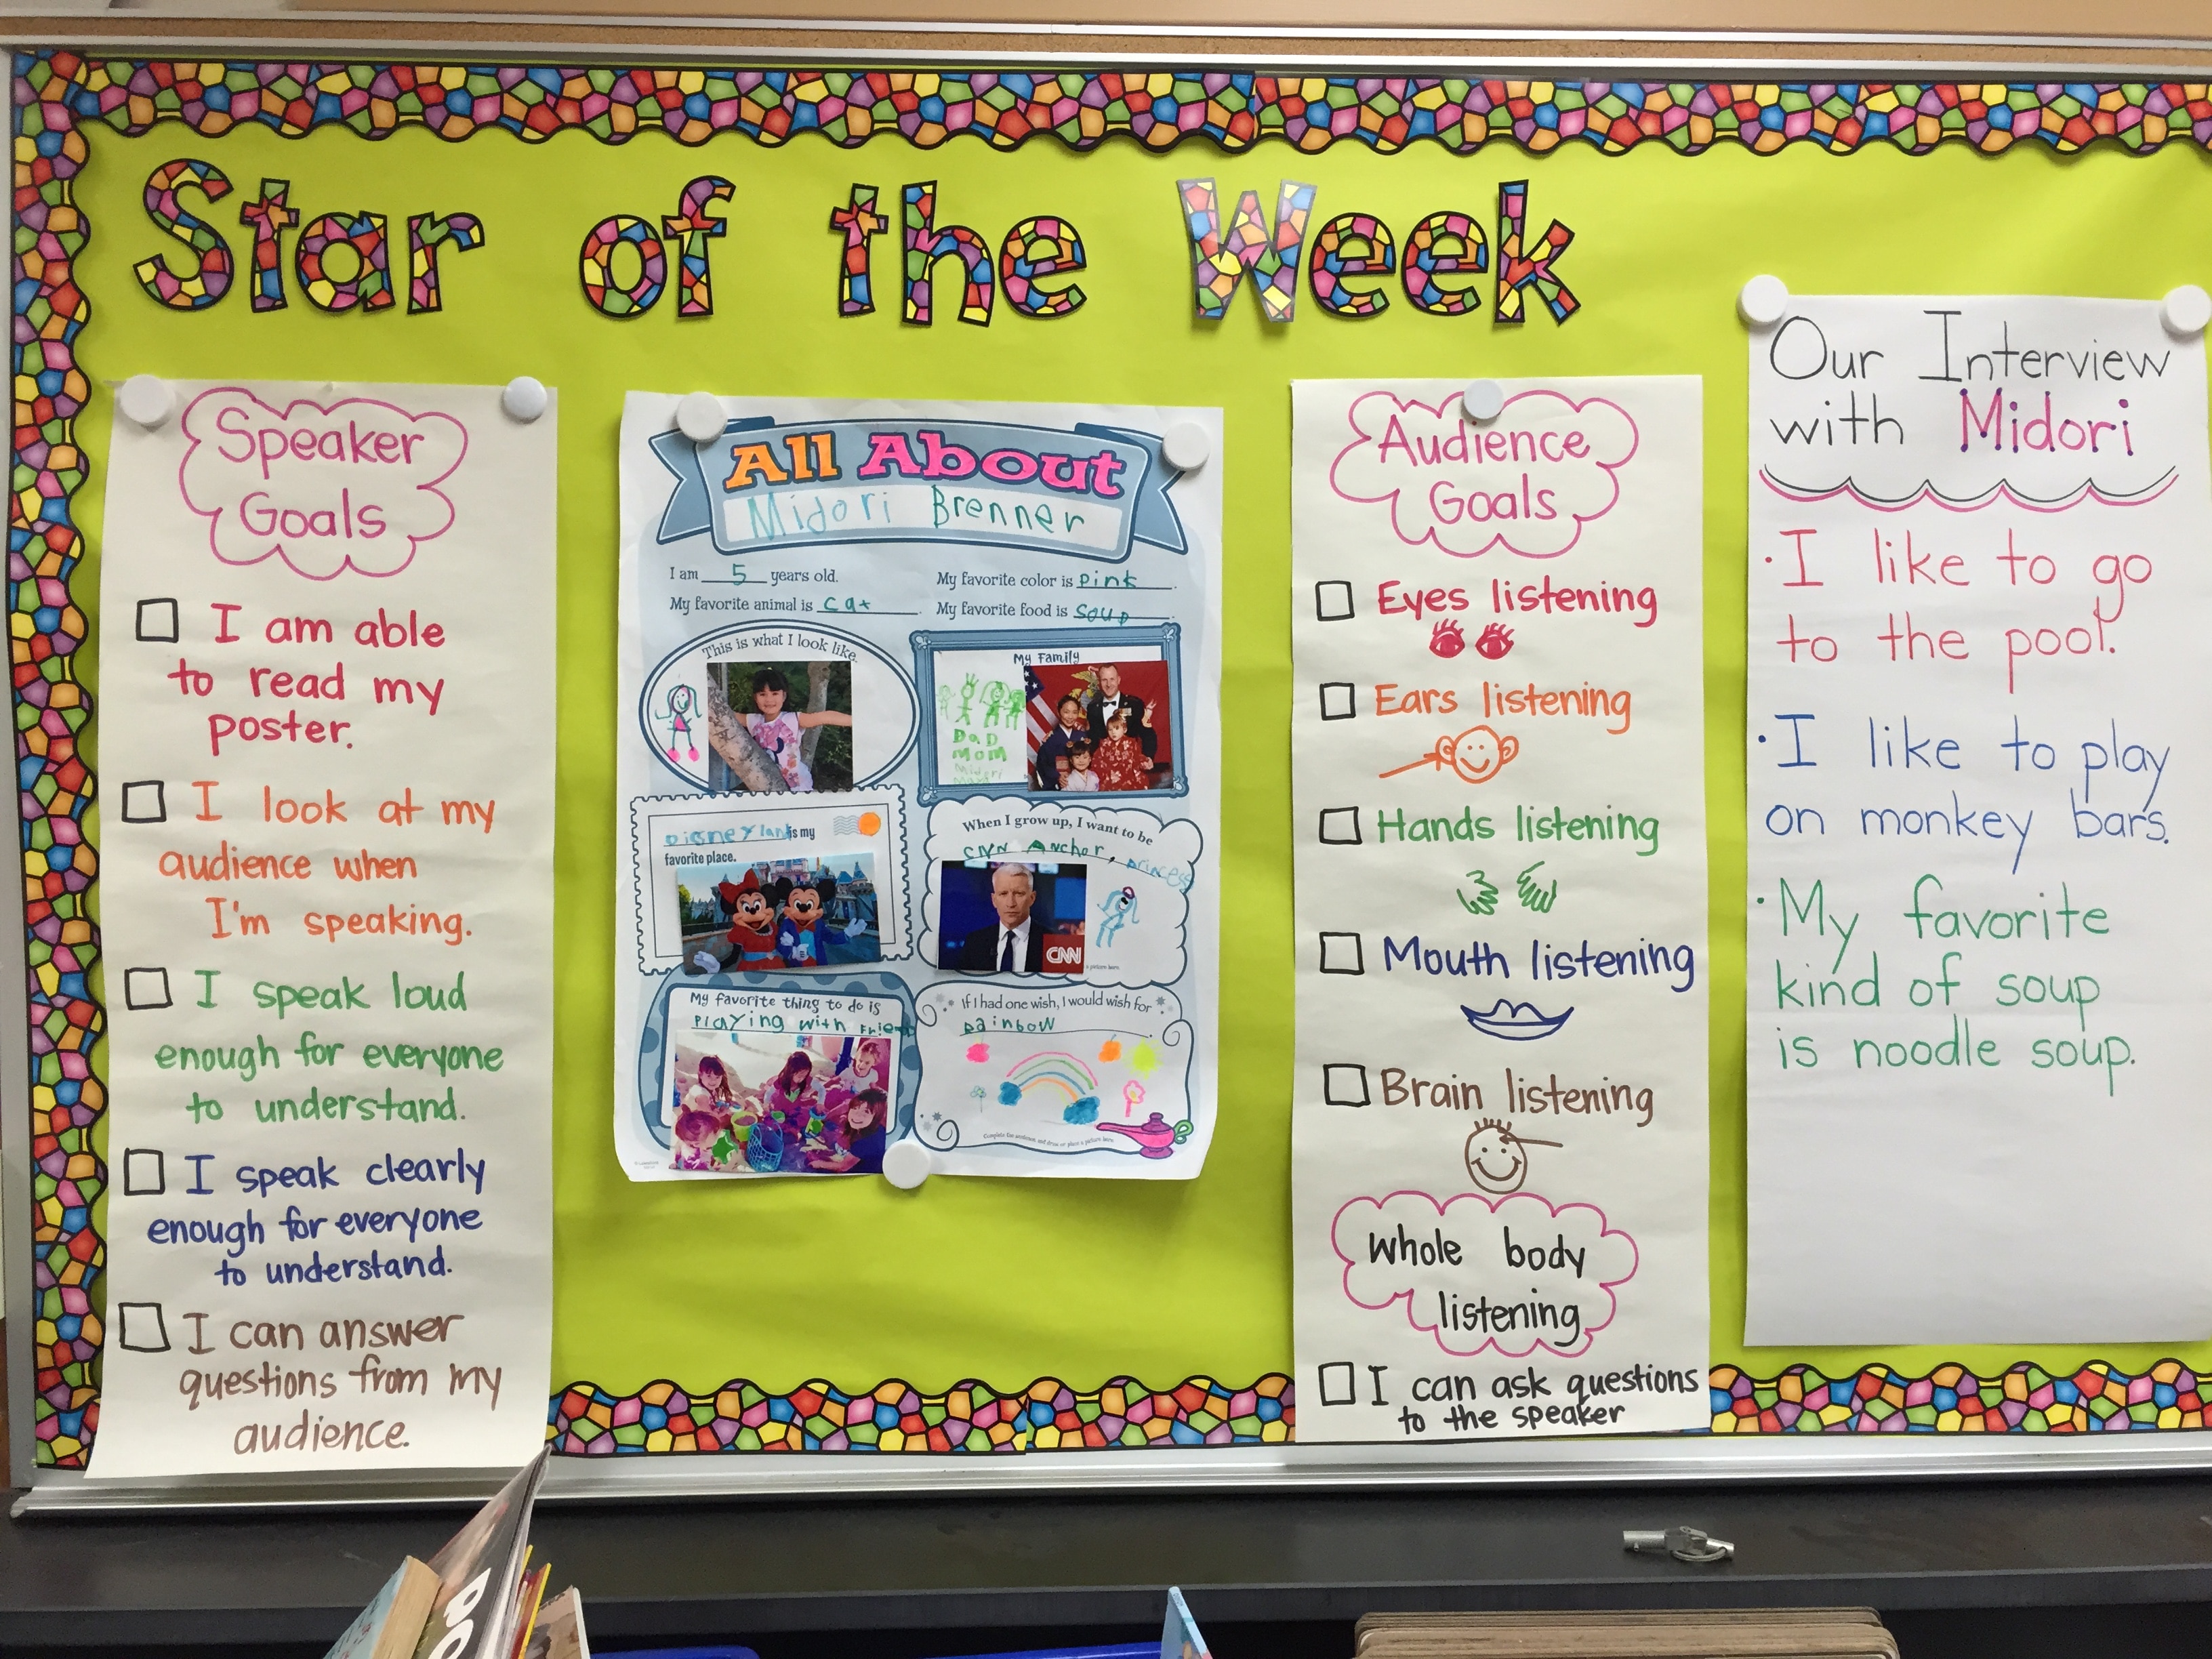 Star of the Week
Speaker
Goals
I am able
to read my
poster.
I look at my
audience when
I'm speaking.
I speak loud
enough for everyone
to understand.
I speak clearly
enough for everyone
to understand.
I can answer
questions from my
audience.
All About
Midori Brenner
I am 5 years old.
My favorite color is pink.
My favorite animal is cat.
My favorite food is soup.
This is what I look like.
My Family
DaD
MOM
Midori
Disneyland is my
favorite place.
When I grow up, I want to be
CNN Anchor, princess
CNN
a picture here.
My favorite thing to do is
Playing with
If I had one wish, I would wish for
Rainbow
Complete the sentence and draw or place a picture here.
Audience
Goals
Eyes listening
Ears listening
Hands listening
Mouth listening
Brain listening
whole body
listening
I can ask questions
to the speaker
Our Interview
with Midori
· I like to go
to the pool.
· I like to play
on monkey bars.
· My favorite
kind of soup
is noodle soup.